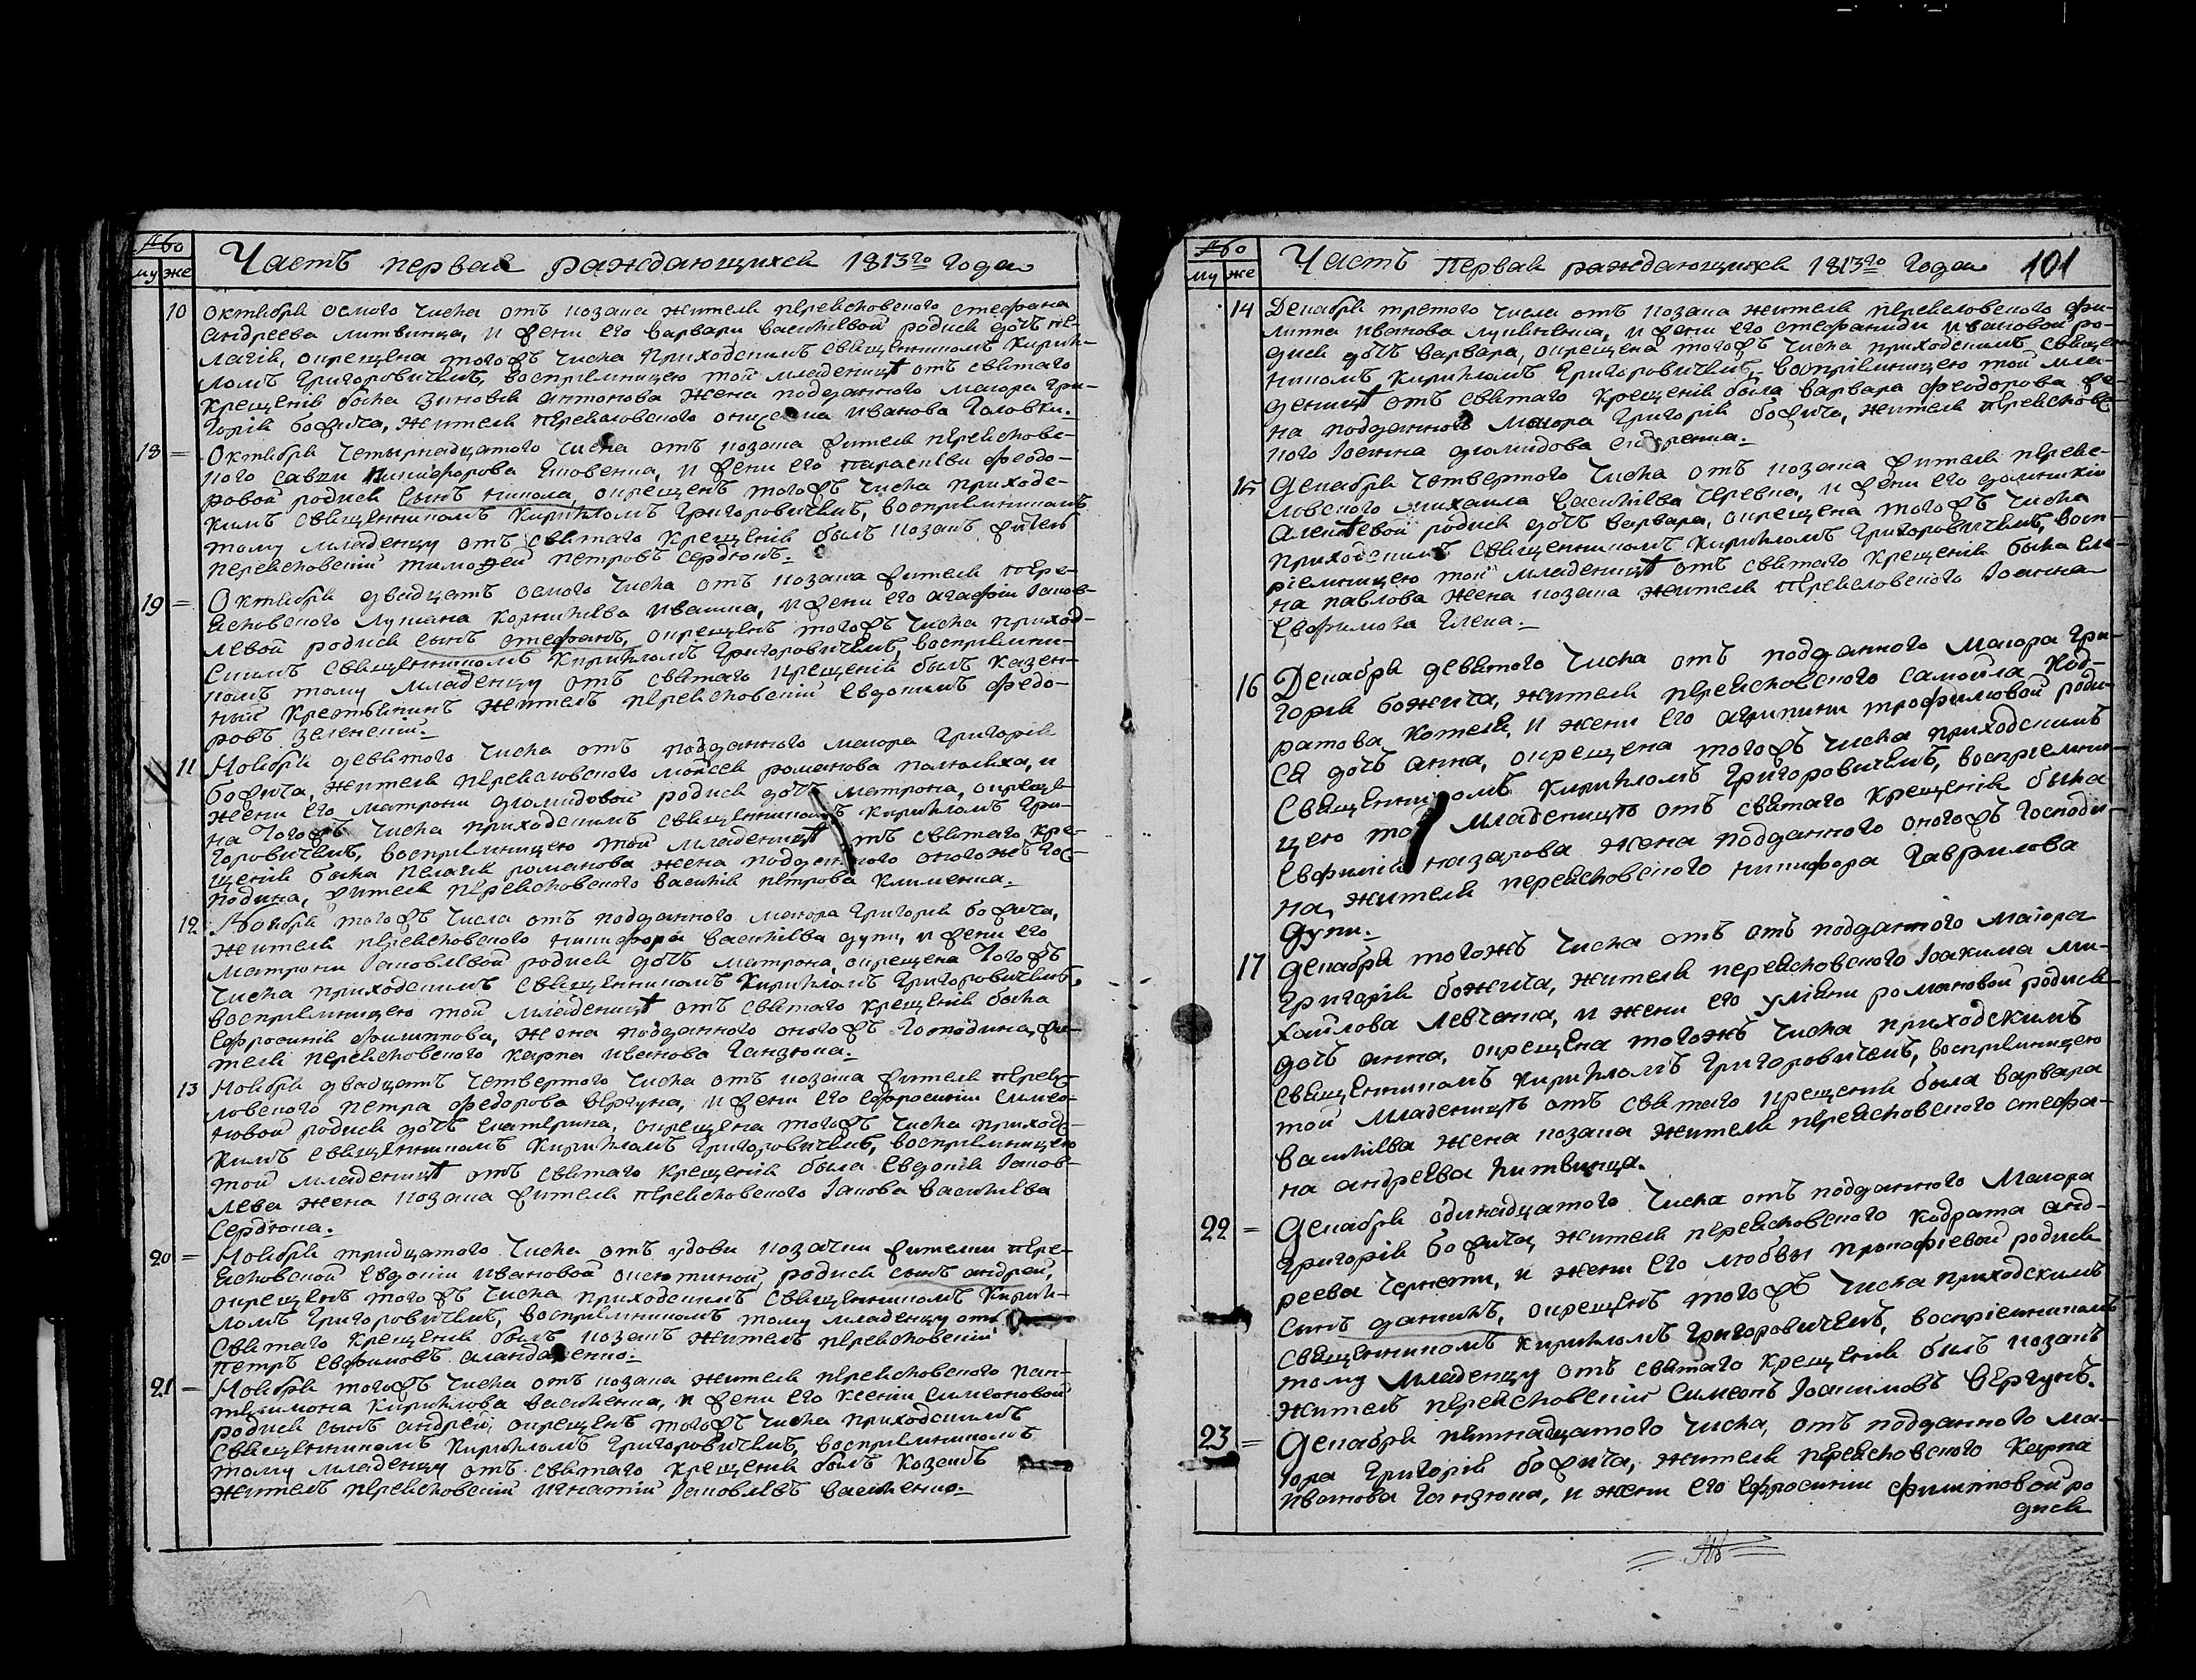 №бо
му же
Часть первая раждающихся 1813го года
10 Октября осмого числа отъ козака жителя переясловского стефана
андреева литвинца, и жени его варвари васильевой родися дочь пе-
лагія, окрещена тогожъ числа приходскимъ священникомъ Кирил-
ломъ Григоровичемъ, восприемницею той младеницѣ отъ святаго
крещенія была зиновія антонова жена подданного маіора Гри-
горія божича, жителя переясловского онисема иванова Головки.
18 = Октября четырнадцатого числа отъ козака жителя переяслов-
кого савви никифорова Яковенка, и жени его параскеви феодо-
ровой родися сынъ никола, окрещенъ тогожъ числа приходс-
кимъ священникомъ Кирилломъ Григоровичемъ, восприемникомъ
тому младенцу отъ святаго крещенія былъ козакъ житель
переясловскій тимофей петровъ сердюкъ.
19 = Октября двадцать осмого числа отъ козака жителя пере-
ясловского лукіана корнилиева ивашка, и жени его агафіи Іаков-
левой родися сынъ стефанъ, окрещенъ тогожъ числа приход-
скимъ священникомъ Кирилломъ Григоровичемъ, восприемни-
комъ тому младенцу отъ святаго крещенія былъ казен-
ный крестьянинъ житель переясловскій евдокимъ федо-
ровъ зеленскій.
11 Ноября девятого числа отъ подданного маіора Григорія
божича, жителя переясловского мойсея романова палюлиха, и
жени его матрони диомидовой родися дочь матрона, окреще-
на тогожъ числа приходскимъ священникомъ Кирилломъ Гри-
горовичемъ, восприемницею той младеницѣ отъ святаго кре-
щенія была пелагія романова жена подданного оногожъ гос-
подина, жителя переясловского василія петрова клименка.
12 Ноября тогожъ числа отъ подданного маіора Григорія божича,
жителя переясловского никифора василіева дупи, и жени его
матрони Іаковлевой родися дочь матрона, окрещена тогожъ
числа приходскимъ священникомъ Кирилломъ Григоровичемъ,
восприемницею той младеницѣ отъ святаго крещенія была
ефросинія филиппова, жена подданного оногожъ господина, жи-
теля переясловского карпа иванова Ганзюка.
13 Ноября двадцать четвертого числа отъ козака жителя переяс-
ловского петра федорова вергуна, и жени его ефросиніи симео-
новой родися дочь екатерина, окрещена тогожъ числа приходс-
кимъ священникомъ Кирилломъ Григоровичемъ, восприемницею
той младеницѣ отъ святаго крещенія была евдокія Іаков-
лева жена козака жителя переясловского Іакова василіева
Сердюка.
20 = Ноября тридцатого числа отъ удови козачки жителки пере-
ясловской евдокіи ивановой оксютиной, родися сынъ андрей,
окрещенъ тогожъ числа приходскимъ священникомъ Кирил-
ломъ Григоровичемъ, восприемникомъ тому младенцу отъ
святаго крещенія былъ козакъ житель переясловскій
петръ евфимовъ
21 = Ноября тогожъ числа отъ козака жителя переясловского пан-
телимона кирилова василенка, и жени его ксеніи симеоновой
родися сынъ андрей, окрещенъ тогожъ числа приходскимъ
священникомъ Кирилломъ Григоровичемъ, восприемникомъ
тому младенцу отъ святаго крещенія былъ козакъ
житель переясловскій игнатій Іаковлевъ василенко.
№бо
му же
Часть Первая раждающихся 1813го Года 101
14 Декабря третого числа отъ козака жителя переясловского фи-
липа иванова лукіненка, и жени его стефаниди ивановой ро-
дися дочь варвара, окрещена тогожъ числа приходскимъ священ-
никомъ Кирилломъ Григоровичемъ, восприемницею той мла-
деницѣ отъ святаго крещенія была варвара феодорова же-
на подданного маіора Григорія божича, жителя переяслов-
кого Іоанна диомидова сидоренка.
15 Декабря четвертого числа отъ козака жителя переяс-
ловского михаила василіева черевка, и жени его домникіи
алексѣевой родися дочь варвара, окрещена тогожъ числа
приходскимъ священникомъ Кирилломъ Григоровичемъ, восп-
ріемницею той младеницѣ отъ святаго крещенія была еле-
на павлова жена козака жителя переясловского Іоанна
евфимова
16 Декабря девятого числа отъ подданного маіора Гри-
горія божича, жителя переясловского самойла код-
ратова котеля, и жени его агрипини трофимовой роди-
ся дочь анна, окрещена тогожъ числа приходскимъ
священникомъ Кирилломъ Григоровичемъ, восприемни-
цею той младеницѣ отъ святаго крещенія была
евфимія назарова жена подданного оногожъ господи-
на, жителя переясловского никифора гаврилова
дупи.
17 Декабря тогожъ числа отъ отъ подданного маіора
Григорія божича, жителя переясловского Іоакима ми-
хайлова левченка, и жени его уліяни романовой родися
дочь анна, окрещена тогожъ числа приходскимъ
священникомъ Кирилломъ Григоровичемъ, восприемницею
той младеницѣ отъ святаго крещенія была варвара
василіева жена козака жителя переясловского стефа-
на андреева литвинца.
22 = Декабря одинадцатого числа отъ подданного маіора
Григорія божича, жителя переясловского кодрата анд-
реева чернети, и жени его любви прокофіевой родися
сынъ даниилъ, окрещенъ тогожъ числа приходскимъ
священникомъ Кирилломъ Григоровичемъ, воспріемникомъ
тому младенцу отъ святаго крещенія былъ козакъ
житель переясловскій Симеонъ Іоакимовъ вергунъ.
23 = Декабря пятнадцатого числа, отъ подданного ма-
іора Григорія божича, жителя переясловского карпа
иванова Ганзюка, и жени его ефросиніи филипповой ро
дися